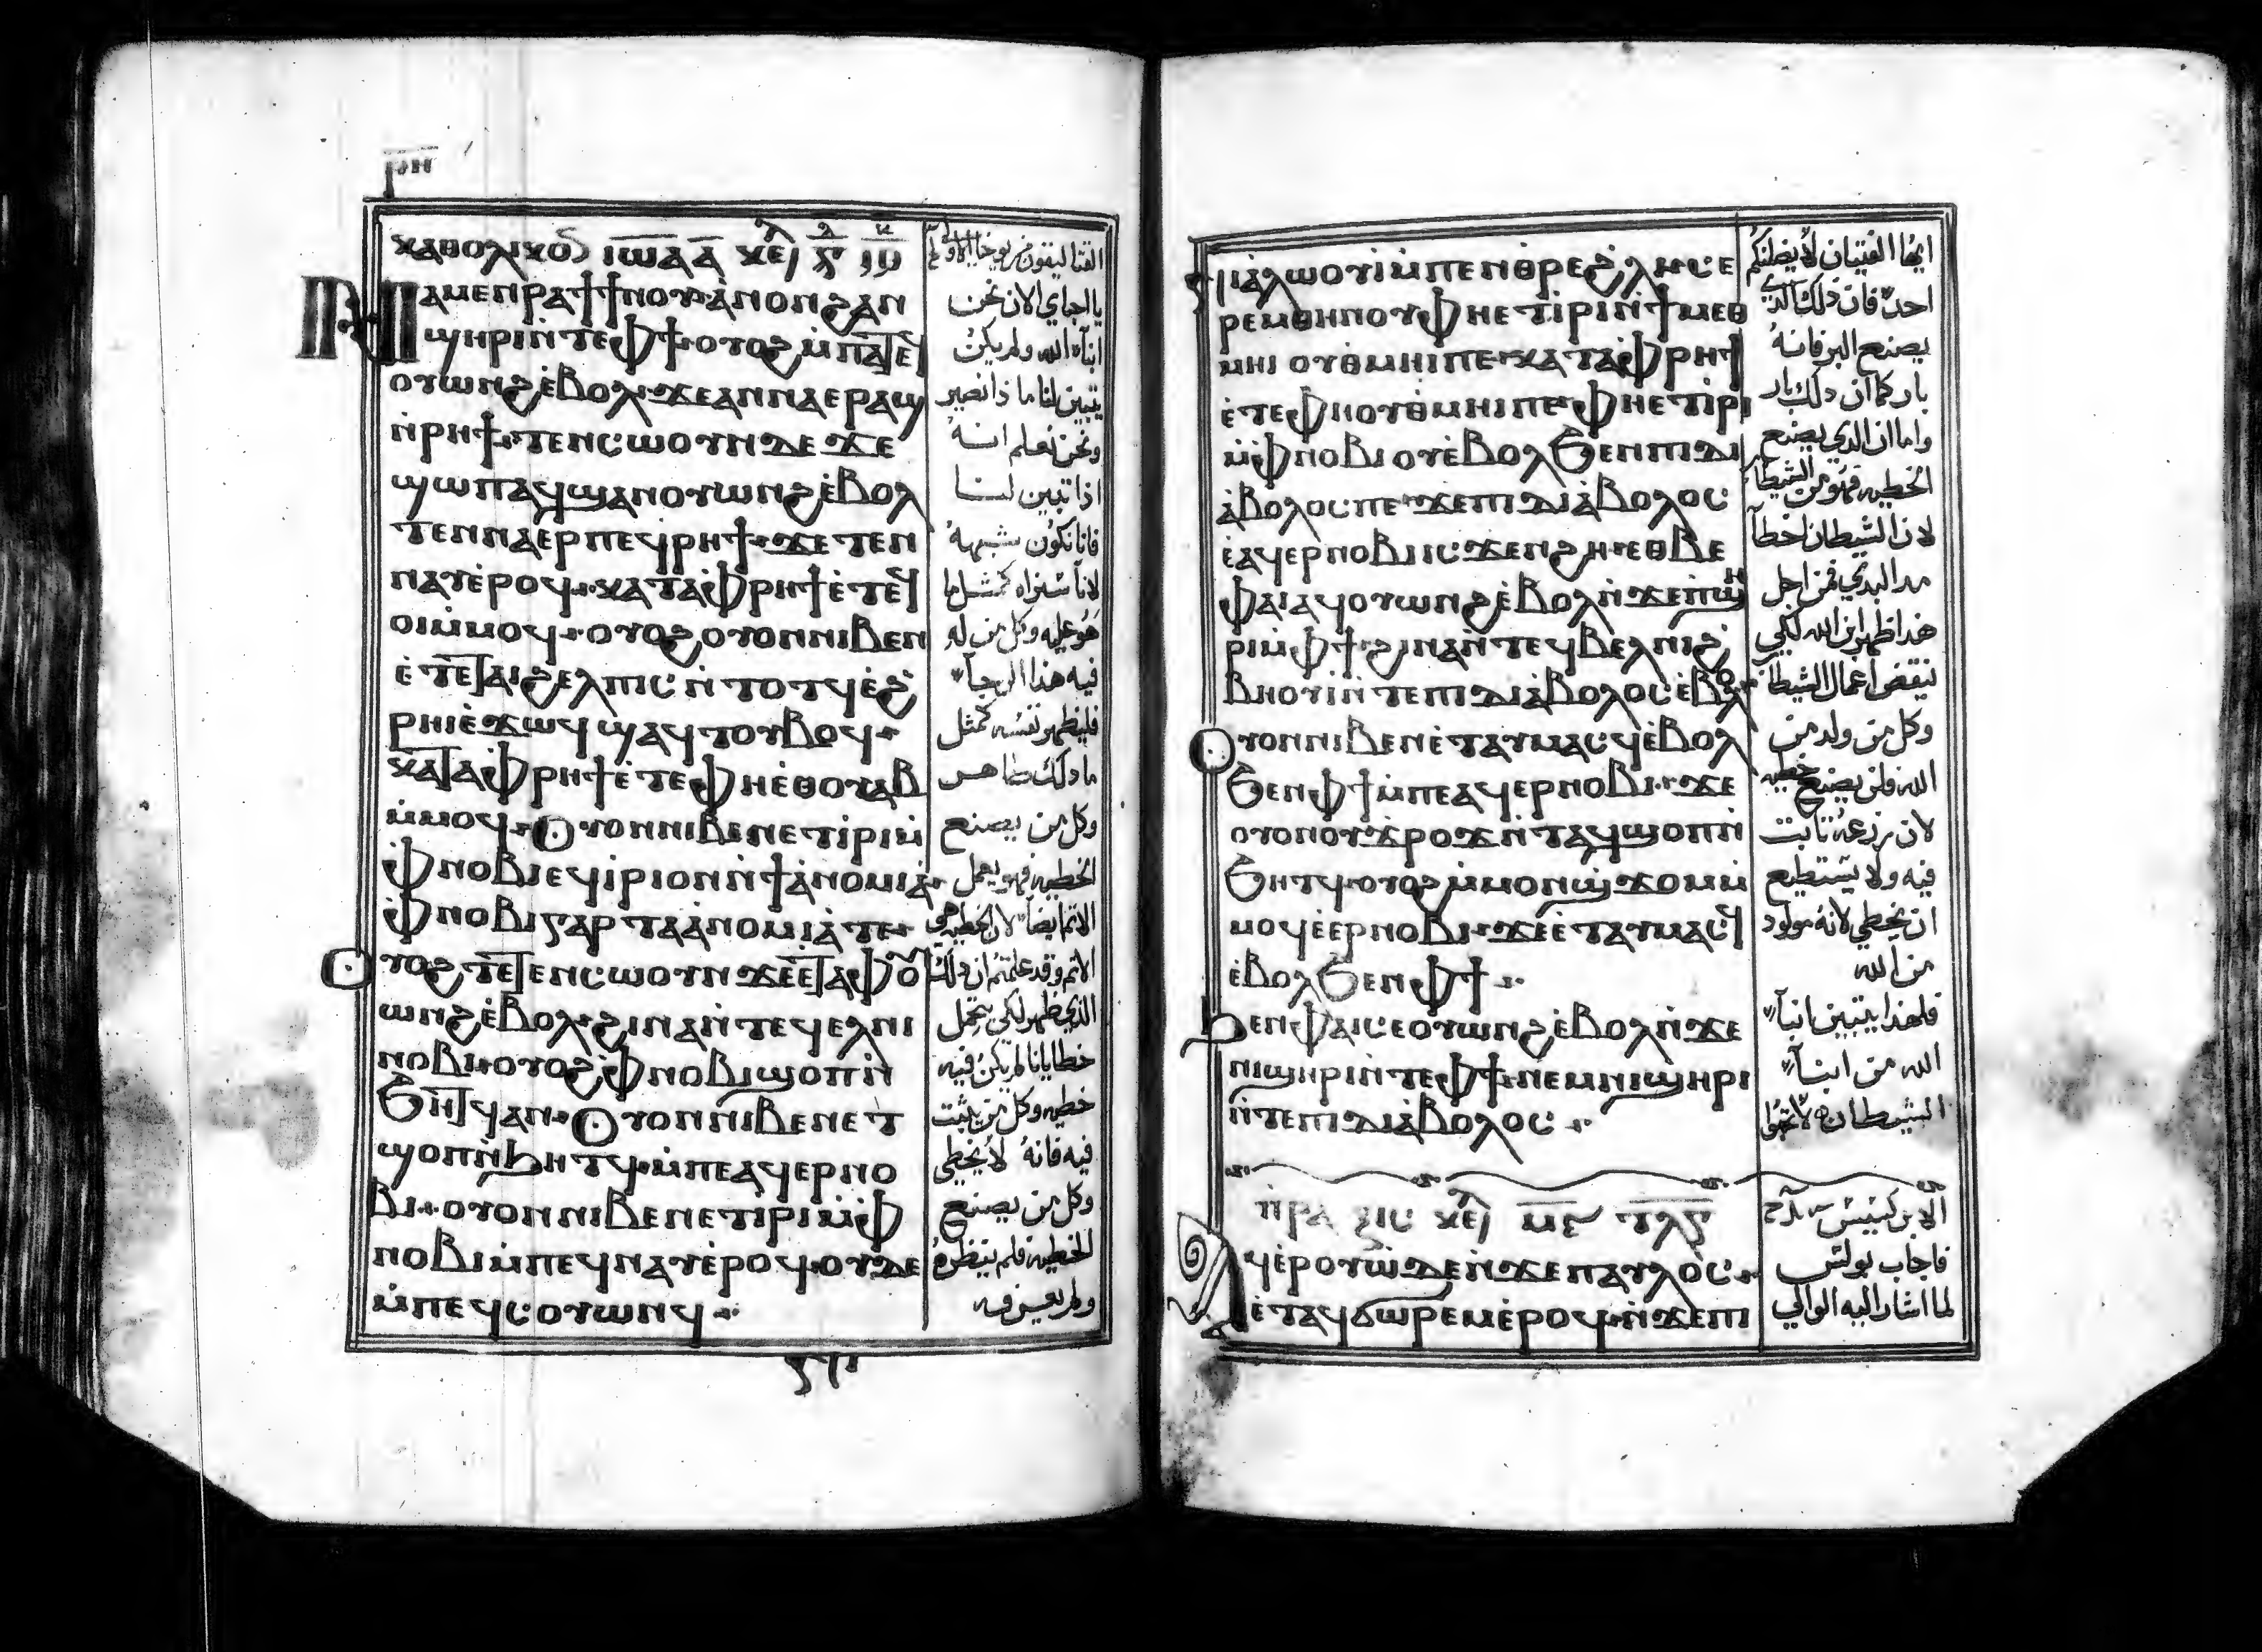 ⲣⲏ
ⲕⲁⲑⲟⲗⲓⲕⲟ ⲓⲱⲁ ⲁ ⲕⲉ
ⲛⲁⲙⲉⲛⲣⲁϯ ϯⲛⲟⲩ ⲁ̀ⲛⲟⲛϩⲁⲛ
ϣⲏⲣⲓⲛ̀ⲧⲉⲫϯ ⲟⲩⲟϩ ⲙ̀ⲡⲁⲧⲉϥ
ⲟⲩⲱⲛϩⲉ̀ⲃⲟⲗ ϫⲉⲁⲛⲛⲁⲉⲣⲁϣ
ⲛ̀ⲣⲏϯ ⲧⲉⲛⲥⲱⲟⲩⲛⲇⲉ ϫⲉ
ϣⲱⲡⲁϥϣⲁⲛⲟⲩⲱⲛϩⲉ̀ⲃⲟⲗ
ⲧⲉⲛⲛⲁⲉⲣⲡⲉϥⲣⲏϯ ϫⲉ ⲧⲉⲛ
ⲛⲁⲩⲉ̀ⲣⲟϥ ⲕⲁⲧⲁⲫⲣⲏϯ ⲉ̀ⲧⲉϥ
ⲟⲓⲙ̀ⲙⲟϥ ⲟⲩⲟϩ ⲟⲩⲟⲛⲛⲓⲃⲉⲛ
ⲉ̀ⲧⲉⲧⲁⲓϩⲉⲗⲡⲓⲥ ⲛ̀ⲧⲟⲧϥ ⲉ̀ϩ
ⲣⲏⲓⲉ̀ϫⲱϥ ϣⲁϥⲧⲟⲩⲃⲟϥ
ⲕⲁⲧⲁⲫⲣⲏϯ ⲉ̀ⲧⲉⲫⲏⲉ̀ⲑⲟⲩⲁⲃ
ⲙ̀ⲙⲟϥ ⲟⲩⲟⲛⲛⲓⲃⲉⲛ ⲉⲧⲓ̀ⲣⲓⲙ̀
ⲫⲛⲟⲃⲓ ⲉϥⲓ̀ⲣⲓ ⲟⲛ ⲛ̀ϯⲁ̀ⲛⲟⲙⲓⲁ̀
ⲫⲛⲟⲃⲓ ⲅⲁⲣ ⲧⲁⲁ̀ⲛⲟⲙⲓⲁ̀ⲧⲉ
ⲟⲩⲟϩ ⲧⲉⲧⲉⲛⲥⲱⲟⲩⲛ ϫⲉⲉ̀ⲧⲁⲫⲏ ⲟⲩ
ⲱⲛϩⲉ̀ⲃⲟⲗ ϩⲓⲛⲁ ⲛ̀ⲧⲉϥⲉⲗⲛⲓ
ⲛⲟⲃⲓ ⲟⲩⲟϩ ⲫⲛⲟⲃⲓ ϣⲟⲡ ⲛ̀
ϧⲏⲧϥ ⲁⲛ ⲟⲩⲟⲛⲛⲓⲃⲉⲛ ⲉⲧ
ϣⲟⲡ ⲛ̀ϧⲏⲧϥ ⲙ̀ⲡⲉⲁϥⲉⲣⲛⲟ
ⲃⲓ ⲟⲩⲟⲛⲛⲓⲃⲉⲛ ⲉⲧⲓⲣⲓ ⲙ̀ⲫ
ⲛⲟⲃⲓ ⲙ̀ⲡⲉϥⲛⲁⲩⲉ̀ⲣⲟϥ ⲟⲩⲇⲉ
ⲙ̀ⲡⲉϥⲥⲟⲩⲱⲛϥ
يا احباي الان نحن
ابناء الله ولم يكن
يتبين لنا ما ذا نصير
ونحن نعلم انه
اذا تبين لنا
فانا نكون شبهه
لانا سنراه كمثل ما
هو عليه وكل من له
فيه هذا الرجاء
فليطهر نفسه كمثل
ما ذلك طاهر
وكل من يصنع
الخطيه فهو يعمل
الاثم ايضا لان الخطيه هي
الاثم وقد علمتم ان ذلك
الذي ظهر لكي يحمل
خطايانا لم تكن فيه
خطيه وكل من يثبت
فيه فانه لا يخطي
وكل من يصنع
الخطيه فلم ينظره
ولم يعرفه
ⲛⲓⲁ̀ⲗⲱⲟⲩⲓ̀ ⲙ̀ⲡⲉⲛⲑⲣⲉϩⲗⲓ ⲥⲉ
ⲣⲉⲙⲑⲏⲛⲟⲩ ⲫⲏⲉⲧⲓ̀ⲣⲓ ⲛ̀ϯⲙⲉⲑ
ⲙⲏⲓ ⲟⲩⲑⲙⲏⲓ ⲡⲉ ⲕⲁⲧⲁⲫⲣⲏϯ
ⲉ̀ⲧⲉⲫⲏ ⲟⲩⲑⲙⲏⲓ ⲡⲉ ⲫⲏⲉⲧⲓ̀ⲣⲓ
ⲙ̀ⲫⲛⲟⲃⲓ ⲟⲩⲉ̀ⲃⲟⲗϧⲉⲛ ⲡⲓⲇⲓ
ⲁ̀ⲃⲟⲗⲟⲥ ⲡⲉ ϫⲉ ⲡⲓⲇⲓⲁ̀ⲃⲟⲗⲟⲥ
ⲉⲁϥⲉⲣⲛⲟⲃⲓ ⲓⲥϫⲉⲛϩⲏ ⲉⲑⲃⲉ
ⲫⲁⲓ ⲁϥⲟⲩⲱⲛϩⲉ̀ⲃⲟⲗ ⲛ̀ϫⲉⲡϣⲏ
ⲣⲓ ⲙ̀ⲫϯ ϩⲓⲛⲁ ⲛ̀ⲧⲉϥⲃⲉⲗ ⲛⲓϩ
ⲃⲏⲟⲩⲓ̀ ⲛ̀ⲧⲉⲡⲓⲇⲓⲁ̀ⲃⲟⲗⲟⲥ ⲉ̀ⲃⲟⲗ
ⲟⲩⲟⲛⲛⲓⲃⲉⲛ ⲉ̀ⲧⲁⲩⲙⲁⲥϥ ⲉ̀ⲃⲟⲗ
ϧⲉⲛⲫϯ ⲙ̀ⲡⲉⲁϥⲉⲣⲛⲟⲃⲓ ϫⲉ
ⲟⲩⲟⲛ ⲟⲩϫⲣⲟϫ ⲛ̀ⲧⲁϥ ϣⲟⲡ ⲛ̀
ϧⲏⲧϥ ⲟⲩⲟϩ ⲙ̀ⲙⲟⲛϣϫⲟⲙ ⲙ̀
ⲙⲟϥ ⲉ̀ⲉⲣⲛⲟⲃⲓ ϫⲉ ⲉ̀ⲧⲁⲩⲙⲁⲥϥ
ⲉ̀ⲃⲟⲗϧⲉⲛⲫϯ
ϧⲉⲛⲫⲁⲓ ⲥⲉⲟⲩⲱⲛϩⲉ̀ⲃⲟⲗ ⲛ̀ϫⲉ
ⲛⲓϣⲏⲣⲓ ⲛ̀ⲧⲉⲫϯ ⲛⲉⲙⲛⲓϣⲏⲣⲓ
ⲛ̀ⲧⲉⲡⲓⲇⲓⲁ̀ⲃⲟⲗⲟⲥ
ⲡⲣⲁⲝⲓⲥ ⲕⲉ
ⲁϥⲉⲣⲟⲩⲱ̀ ⲇⲉ ⲛ̀ϫⲉ ⲡⲁⲩⲗⲟⲥ
ⲉ̀ⲧⲁϥϭⲱⲣⲉⲙ ⲉ̀ⲣⲟϥ ⲛ̀ϫⲉⲡⲓ
ايها الفتيان لا يضلنكم
احد فان ذلك الذي
يصنع البر فانه
بار كما ان ذلك بار
واما ان الذي يصنع
الخطيه فهو من الشيطا
لان الشيطان اخطا
مند البدي فمن اجل
هذا ظهر ابن الله لكي
ينقض اعمال الشيطان
وكل من ولد من
الله فلن يصنع خطيه
لان زرعه ثابت
فيه ولا يستطيع
ان يخطي لانه مولود
من الله
فلهذا يتبين ابناء
الله من ابناء
الشيطان
فاجاب بولس
لما اشار اليه الوالي